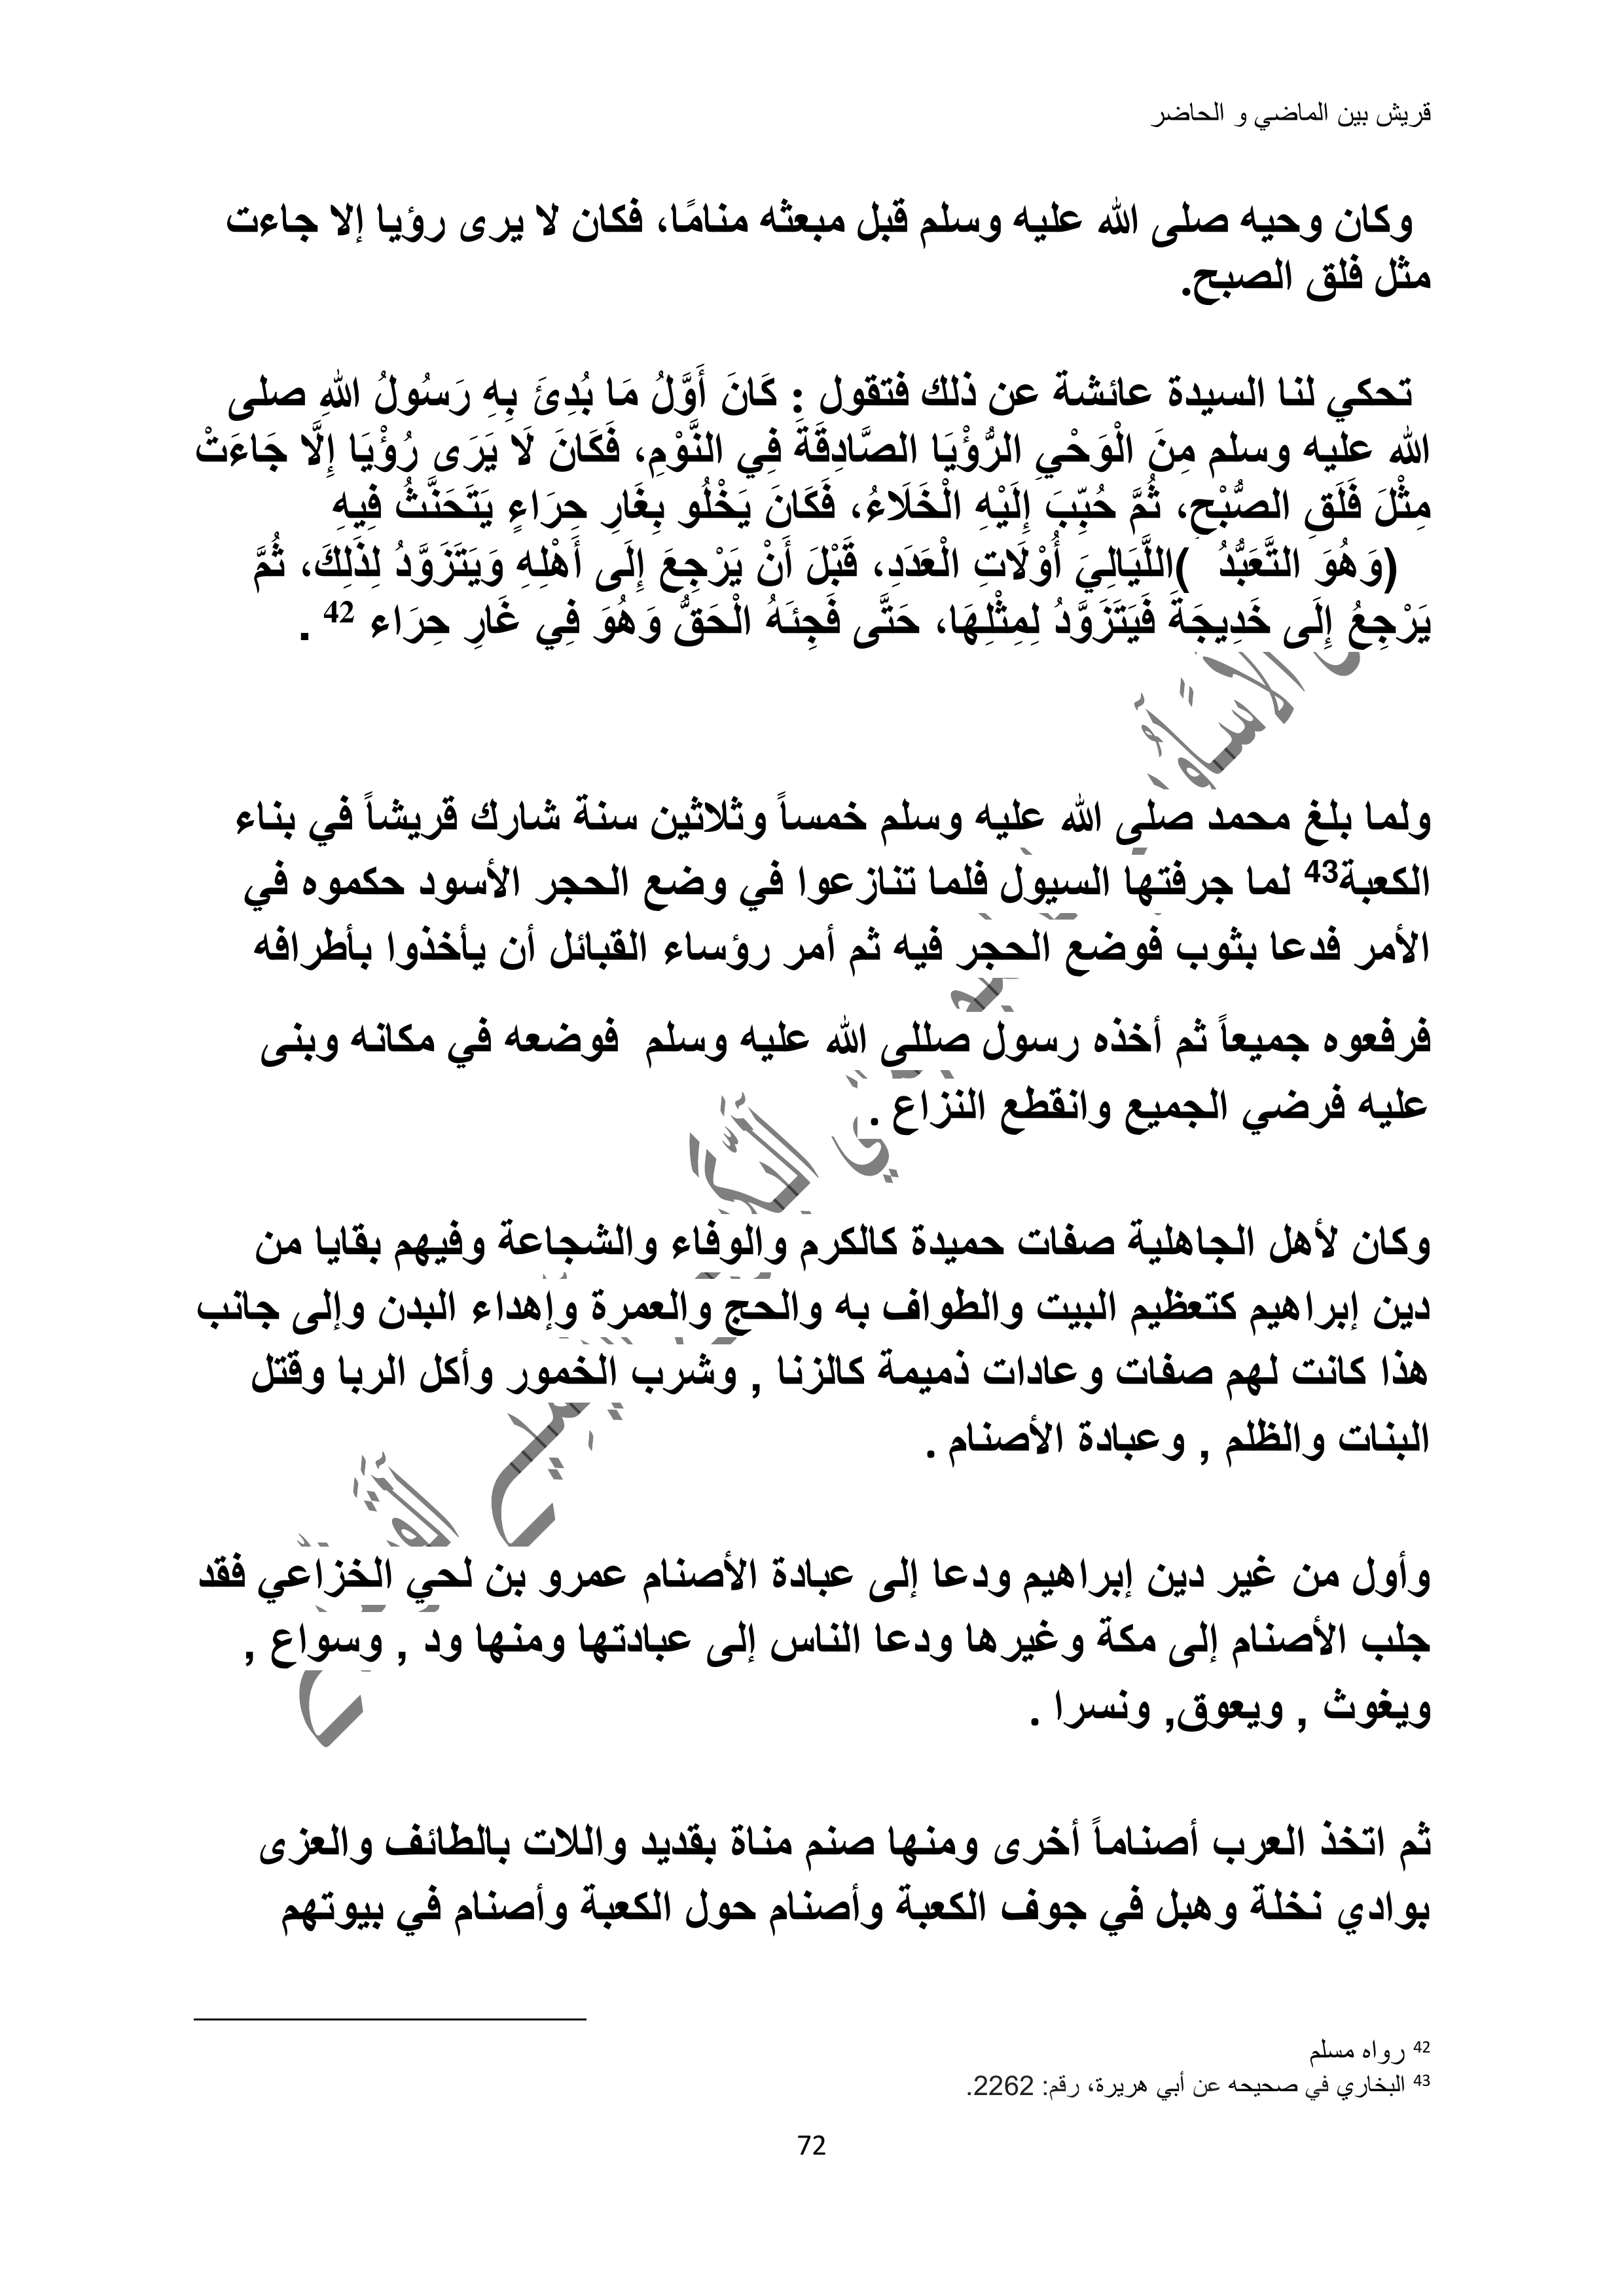 قريش بين الماضي و الحاضر
وكان وحيه صلى الله عليه وسلم قبل مبعثه منامًا، فكان لا يرى رؤيا إلا جاءت
مثل فلق الصبح.
تحكي لنا السيدة عائشة عن ذلك فتقول : كَانَ أَوَّلُ مَا بُدِئَ بِهِ رَسُولُ اللهِ صلى
الله عليه وسلم مِنَ الْوَحْيِ الرُّؤْيَا الصَّادِقَةَ فِي النَّوْمِ، فَكَانَ لَا يَرَى رُؤْيَا إِلَّا جَاءَتْ
مِثْلَ فَلَقِ الصُّبْحِ، ثُمَّ حُبِّبَ إِلَيْهِ الْخَلَاءُ، فَكَانَ يَخْلُو بِغَارِ حِرَاءٍ يَتَحَنَّثُ فِيهِ
(وَهُوَ التَّعَبُّدُ )اللَّيَالِيَ أُوْلَاتِ الْعَدَدِ، قَبْلَ أَنْ يَرْجِعَ إِلَى أَهْلِهِ وَيَتَزَوَّدُ لِذَلِكَ، ثُمَّ
يَرْجِعُ إِلَى خَدِيجَةَ فَيَتَزَوَّدُ لِمِثْلِهَا، حَتَّى فَجِئَهُ الْحَقُّ وَهُوَ فِي غَارِ حِرَاء 42 .
ولما بلغ محمد صلى الله عليه وسلم خمساً وثلاثين سنة شارك قريشاً في بناء
الكعبة43 لما جرفتها السيول فلما تنازعوا في وضع الحجر الأسود حكموه في
الأمر فدعا بثوب فوضع الحجر فيه ثم أمر رؤساء القبائل أن يأخذوا بأطرافه
فرفعوه جميعاً ثم أخذه رسول صللى الله عليه وسلم فوضعه في مكانه وبنى
عليه فرضي الجميع وانقطع النزاع .
وكان لأهل الجاهلية صفات حميدة كالكرم والوفاء والشجاعة وفيهم بقايا من
دين إبراهيم كتعظيم البيت والطواف به والحج والعمرة وإهداء البدن وإلى جانب
هذا كانت لهم صفات وعادات ذميمة كالزنا , وشرب الخمور وأكل الربا وقتل
البنات والظلم , وعبادة الأصنام .
وأول من غير دين إبراهيم ودعا إلى عبادة الأصنام عمرو بن لحي الخزاعي فقد
جلب الأصنام إلى مكة وغيرها ودعا الناس إلى عبادتها ومنها ود , وسواع ,
ويغوث , ويعوق, ونسرا .
ثم اتخذ العرب أصناماً أخرى ومنها صنم مناة بقديد واللات بالطائف والعزى
بوادي نخلة وهبل في جوف الكعبة وأصنام حول الكعبة وأصنام في بيوتهم
42 رواه مسلم
43 البخاري في صحيحه عن أبي هريرة، رقم: 2262.
72